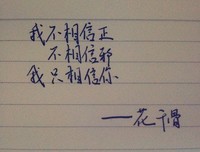 我不相信正
不相信邪
我只相信你
——花千骨